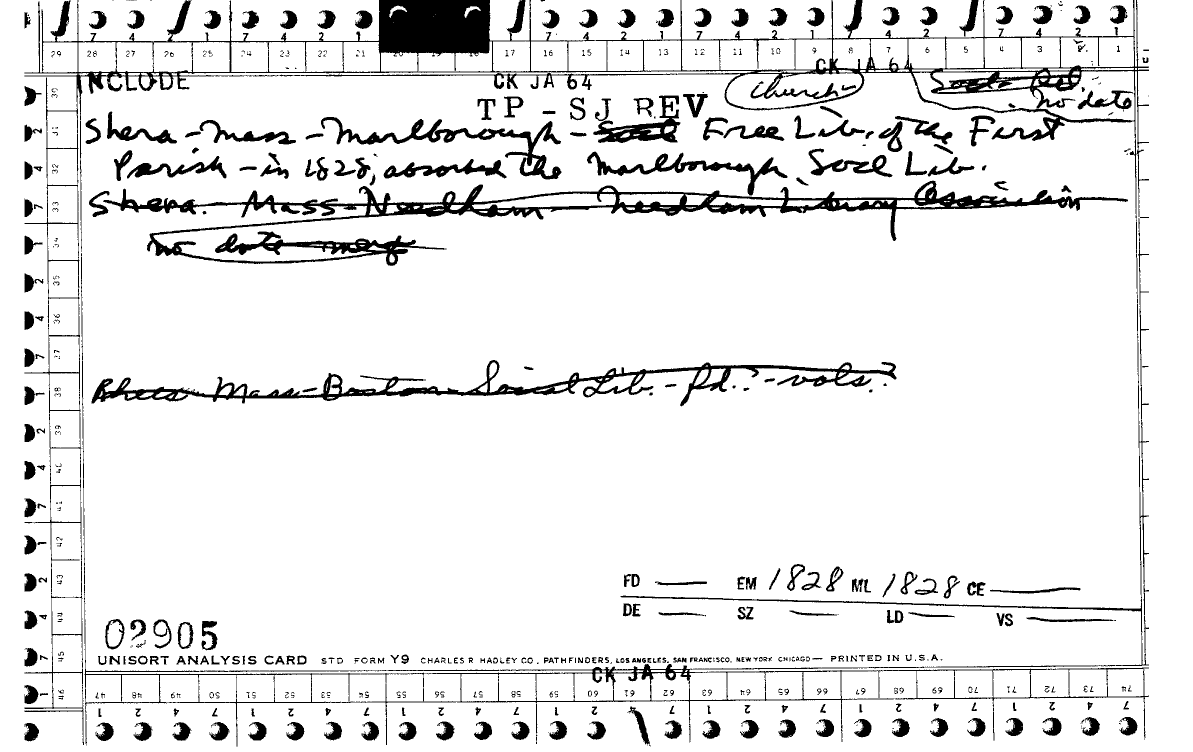 7 4 2 1 7 4 2 1 7 4 2 1 7 4 2 1 7 4 2 1 7 4 2 1
29 28 27 26 25 24 23 22 21 20 19 18 17 16 15 14 13 12 11 10 9 8 7 6 5 4 3 2 1
INCLUDE CK JA 64 CK JA 64
TP - SJ REV Church no date
Shera - Mass - Marlborough - Socl Free Lib. of the First
Parish - in 1828, absorbed the Marlborough Socl Lib.
Shera. Mass - Needham - Needham Library Association
no date - merg
Rhees Mass - Boston - Social Lib. - fd. ? - vols. ?
FD EM 1828 ML 1828 CE
DE SZ LD VS
02905
UNISORT ANALYSIS CARD STD FORM Y9 CHARLES R HADLEY CO., PATHFINDERS, LOS ANGELES, SAN FRANCISCO, NEW YORK CHICAGO — PRINTED IN U.S.A.
CK JA 64
47 48 49 50 51 52 53 54 55 56 57 58 59 60 61 62 63 64 65 66 67 68 69 70 71 72 73 74
1 2 4 7 1 2 4 7 1 2 4 7 1 2 4 7 1 2 4 7 1 2 4 7 1 2 4 7